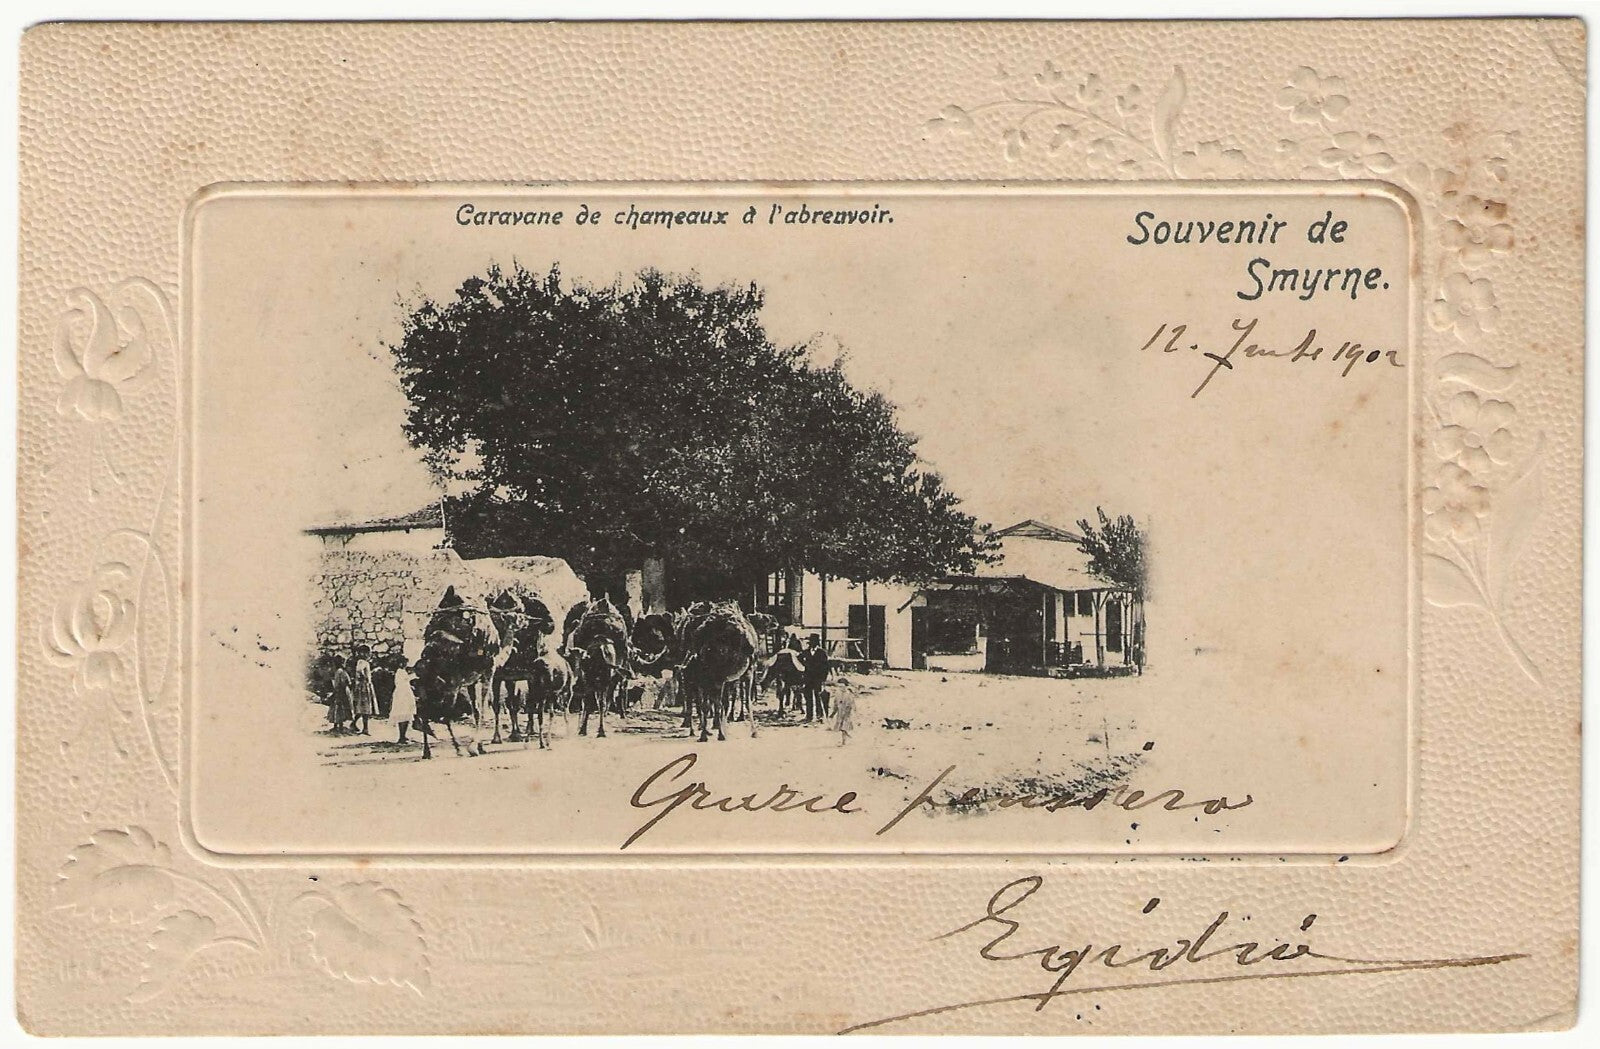 Caravane de chameaux à l'abreuvoir.
Souvenir de
Smyrne.
12. 7mbre 1902
Grazie pensiero
Egidio